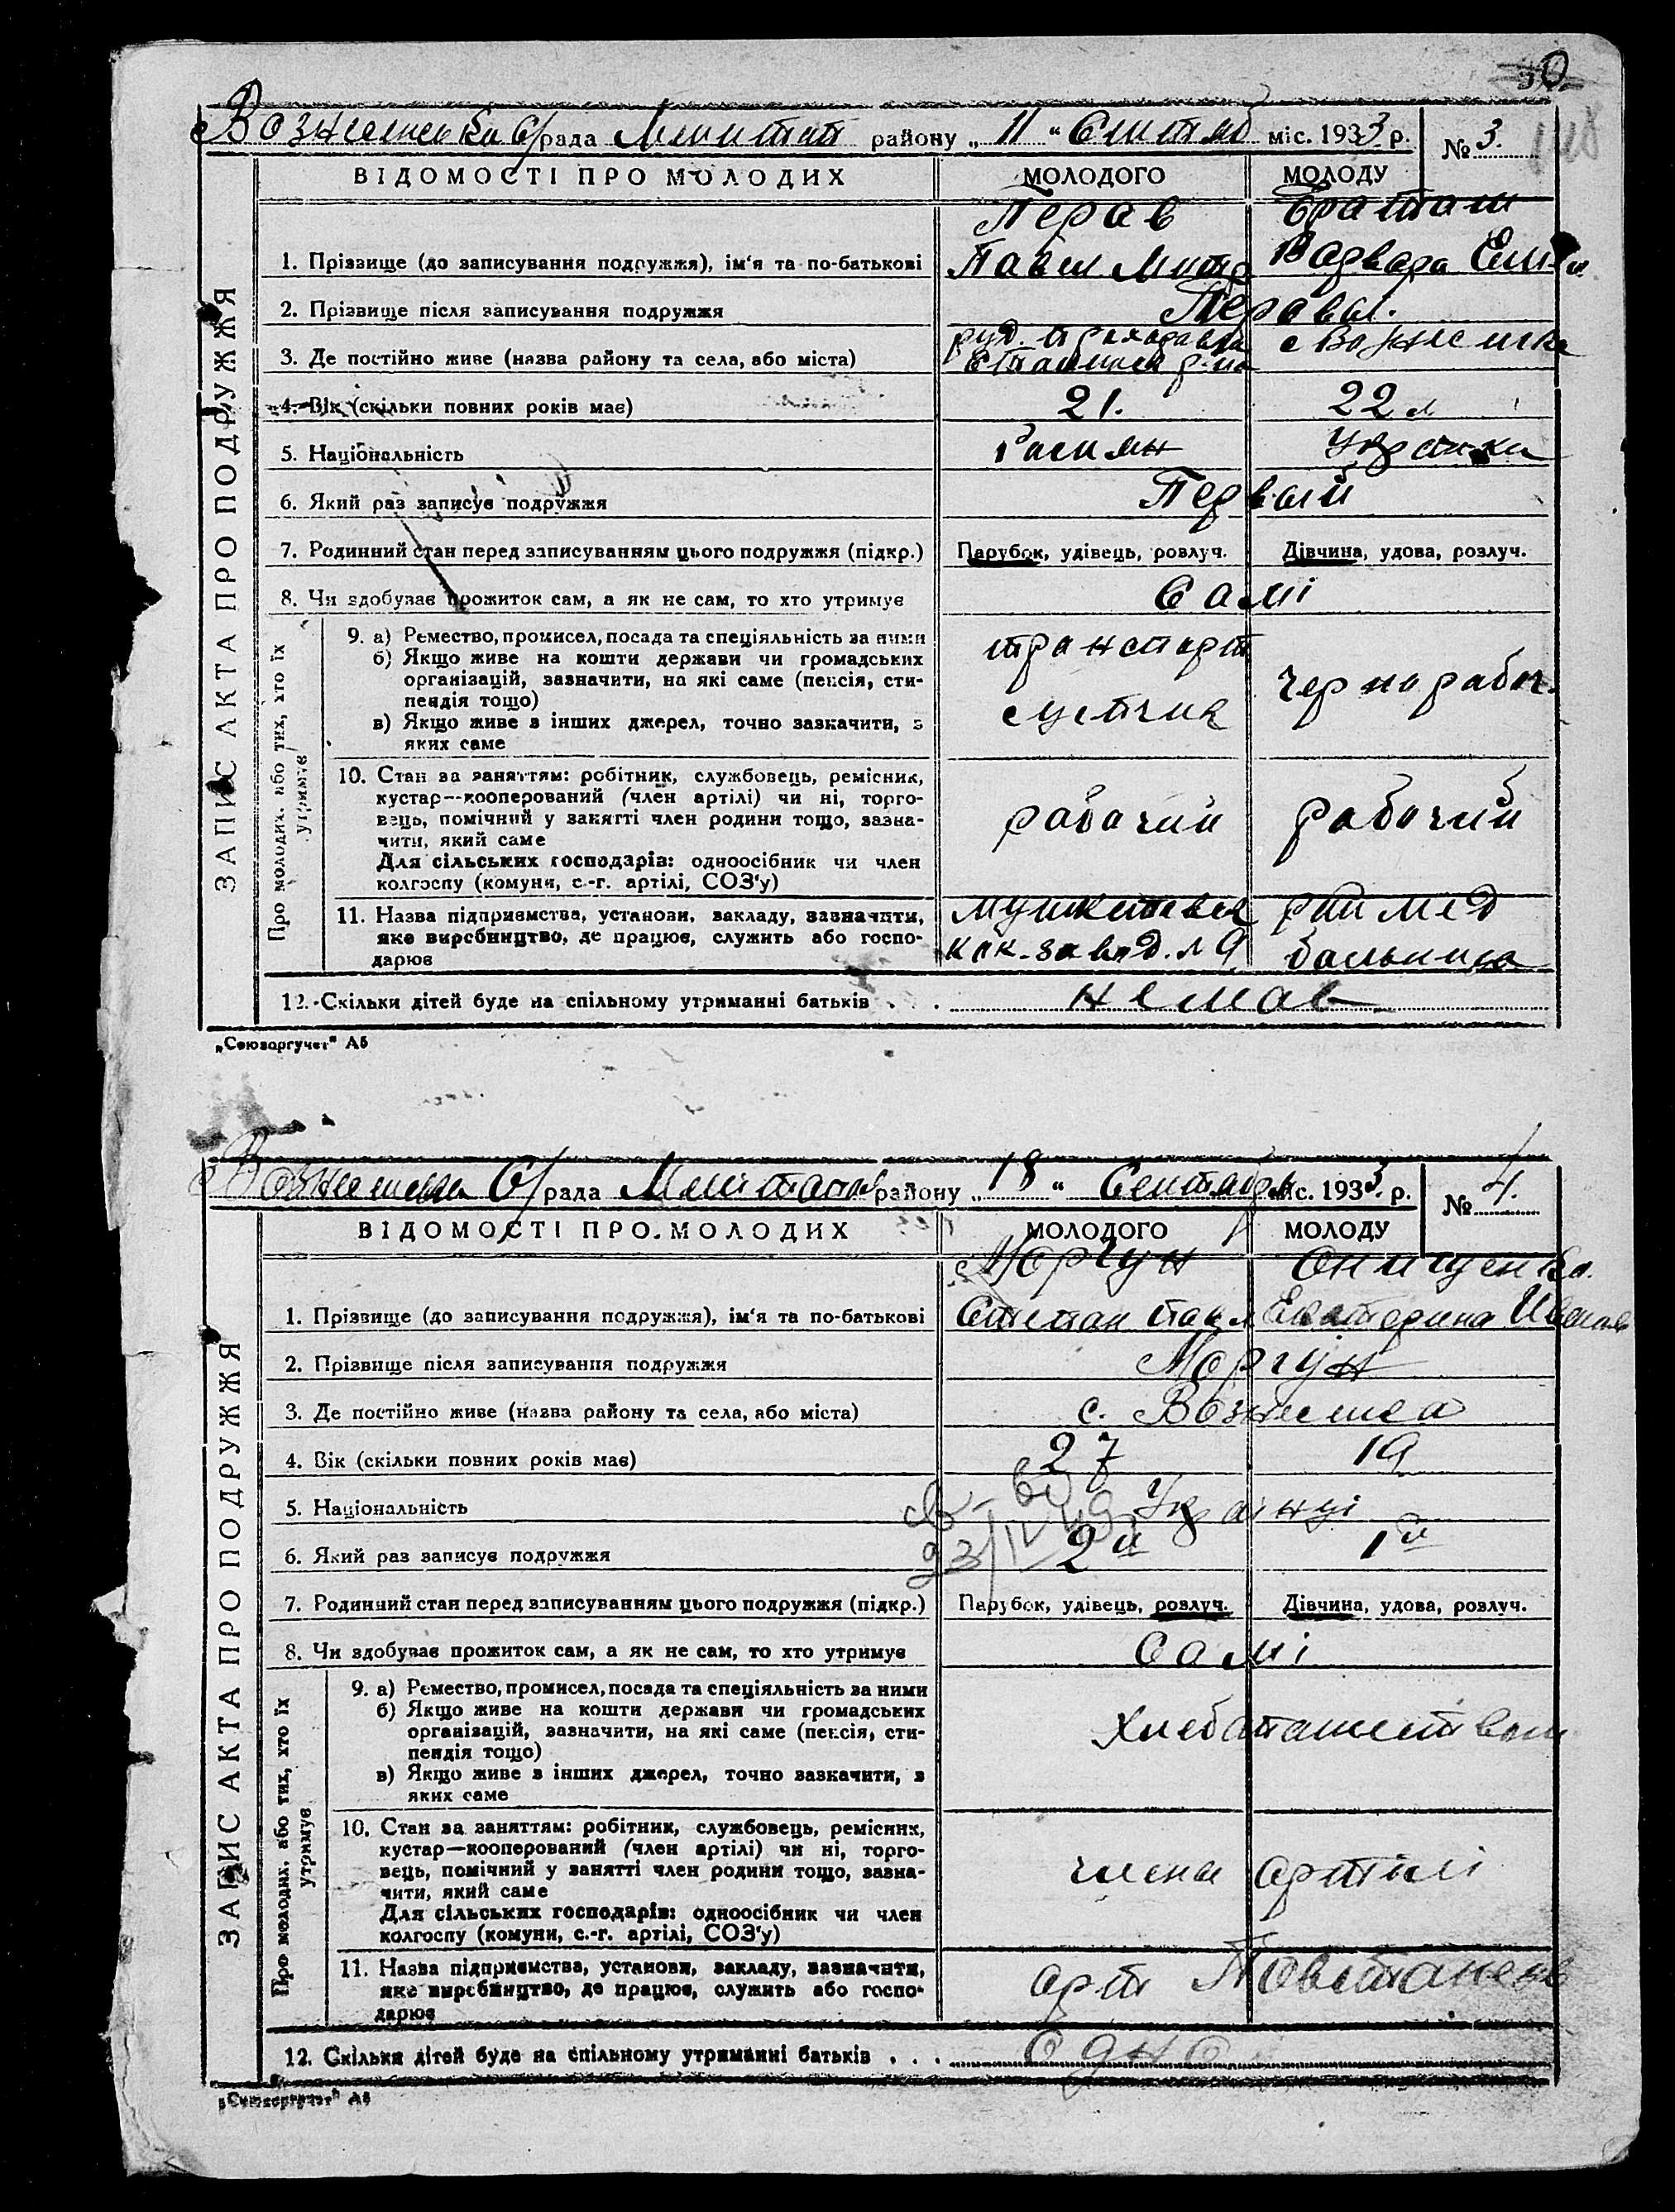 Вознесенська С/рада Меліт. району „11“ Сентяб міс. 1933 р. №3.
ВІДОМОСТІ ПРО МОЛОДИХ МОЛОДОГО МОЛОДУ
Перов
1. Прізвище (до записування подружжя), ім'я та по-батькові Павел Митр Варвара
2. Прізвище після записування подружжя Перовы.
3. Де постійно живе (назва району та села, або міста) с Вознесенка
4. Вік (скільки повних років має) 21. 22 л
5. Національність
6. Який раз записує подружжя Первый
7. Родинний стан перед записуванням цього подружжя (підкр.) Парубок, удівець, розлуч. Дівчина, удова, розлуч.
8. Чи здобуває прожиток сам, а як не сам, то хто утримує Самі
ЗАПИС АКТА ПРО ПОДРУЖЖЯ
Про молодих, або тих, хто їх утримує
9. а) Ремество, промисел, посада та спеціяльність за ними
б) Якщо живе на кошти держави чи громадських
організацій, зазначити, на які саме (пенсія, сти-
пендія тощо)
в) Якщо живе з інших джерел, точно зазначити, з
яких саме
транспорт
чернорабоч.
10. Стан за заняттям: робітник, службовець, ремісник,
кустар—кооперований (член артілі) чи ні, торго-
вець, помічний у занятті член родини тощо, зазна-
чити, який саме
Для сільських господарів: одноосібник чи член
колгоспу (комуни, с.-г. артілі, СОЗ'у)
рабочий рабочий
11. Назва підприємства, установи, закладу, зазначити,
яке виробництво, де працює, служить або госпо-
дарює
кок. завод. №9 больница
12. Скільки дітей буде на спільному утриманні батьків . . . немає
„Союзоргучет“ А5
Вознесенська С/рада Мелітопол району „18“ Сентября міс. 1933 р. №4.
ВІДОМОСТІ ПРО МОЛОДИХ МОЛОДОГО МОЛОДУ
Моргун Онищенко
1. Прізвище (до записування подружжя), ім'я та по-батькові Степан Павл Екатерина Иванов
2. Прізвище після записування подружжя Моргун
3. Де постійно живе (назва району та села, або міста) с. Вознесенка
4. Вік (скільки повних років має) 27 19
5. Національність Українці
6. Який раз записує подружжя 2й 1й
7. Родинний стан перед записуванням цього подружжя (підкр.) Парубок, удівець, розлуч. Дівчина, удова, розлуч.
8. Чи здобуває прожиток сам, а як не сам, то хто утримує Самі
ЗАПИС АКТА ПРО ПОДРУЖЖЯ
Про молодих, або тих, хто їх утримує
9. а) Ремество, промисел, посада та спеціяльність за ними
б) Якщо живе на кошти держави чи громадських
організацій, зазначити, на які саме (пенсія, сти-
пендія тощо)
в) Якщо живе з інших джерел, точно зазначити, з
яких саме
10. Стан за заняттям: робітник, службовець, ремісник,
кустар—кооперований (член артілі) чи ні, торго-
вець, помічний у занятті член родини тощо, зазна-
чити, який саме
Для сільських господарів: одноосібник чи член
колгоспу (комуни, с.-г. артілі, СОЗ'у)
члени артілі
11. Назва підприємства, установи, закладу, зазначити,
яке виробництво, де працює, служить або госпо-
дарює
арт Повстанець
12. Скільки дітей буде на спільному утриманні батьків . . . одно
„Союзоргучет“ А5